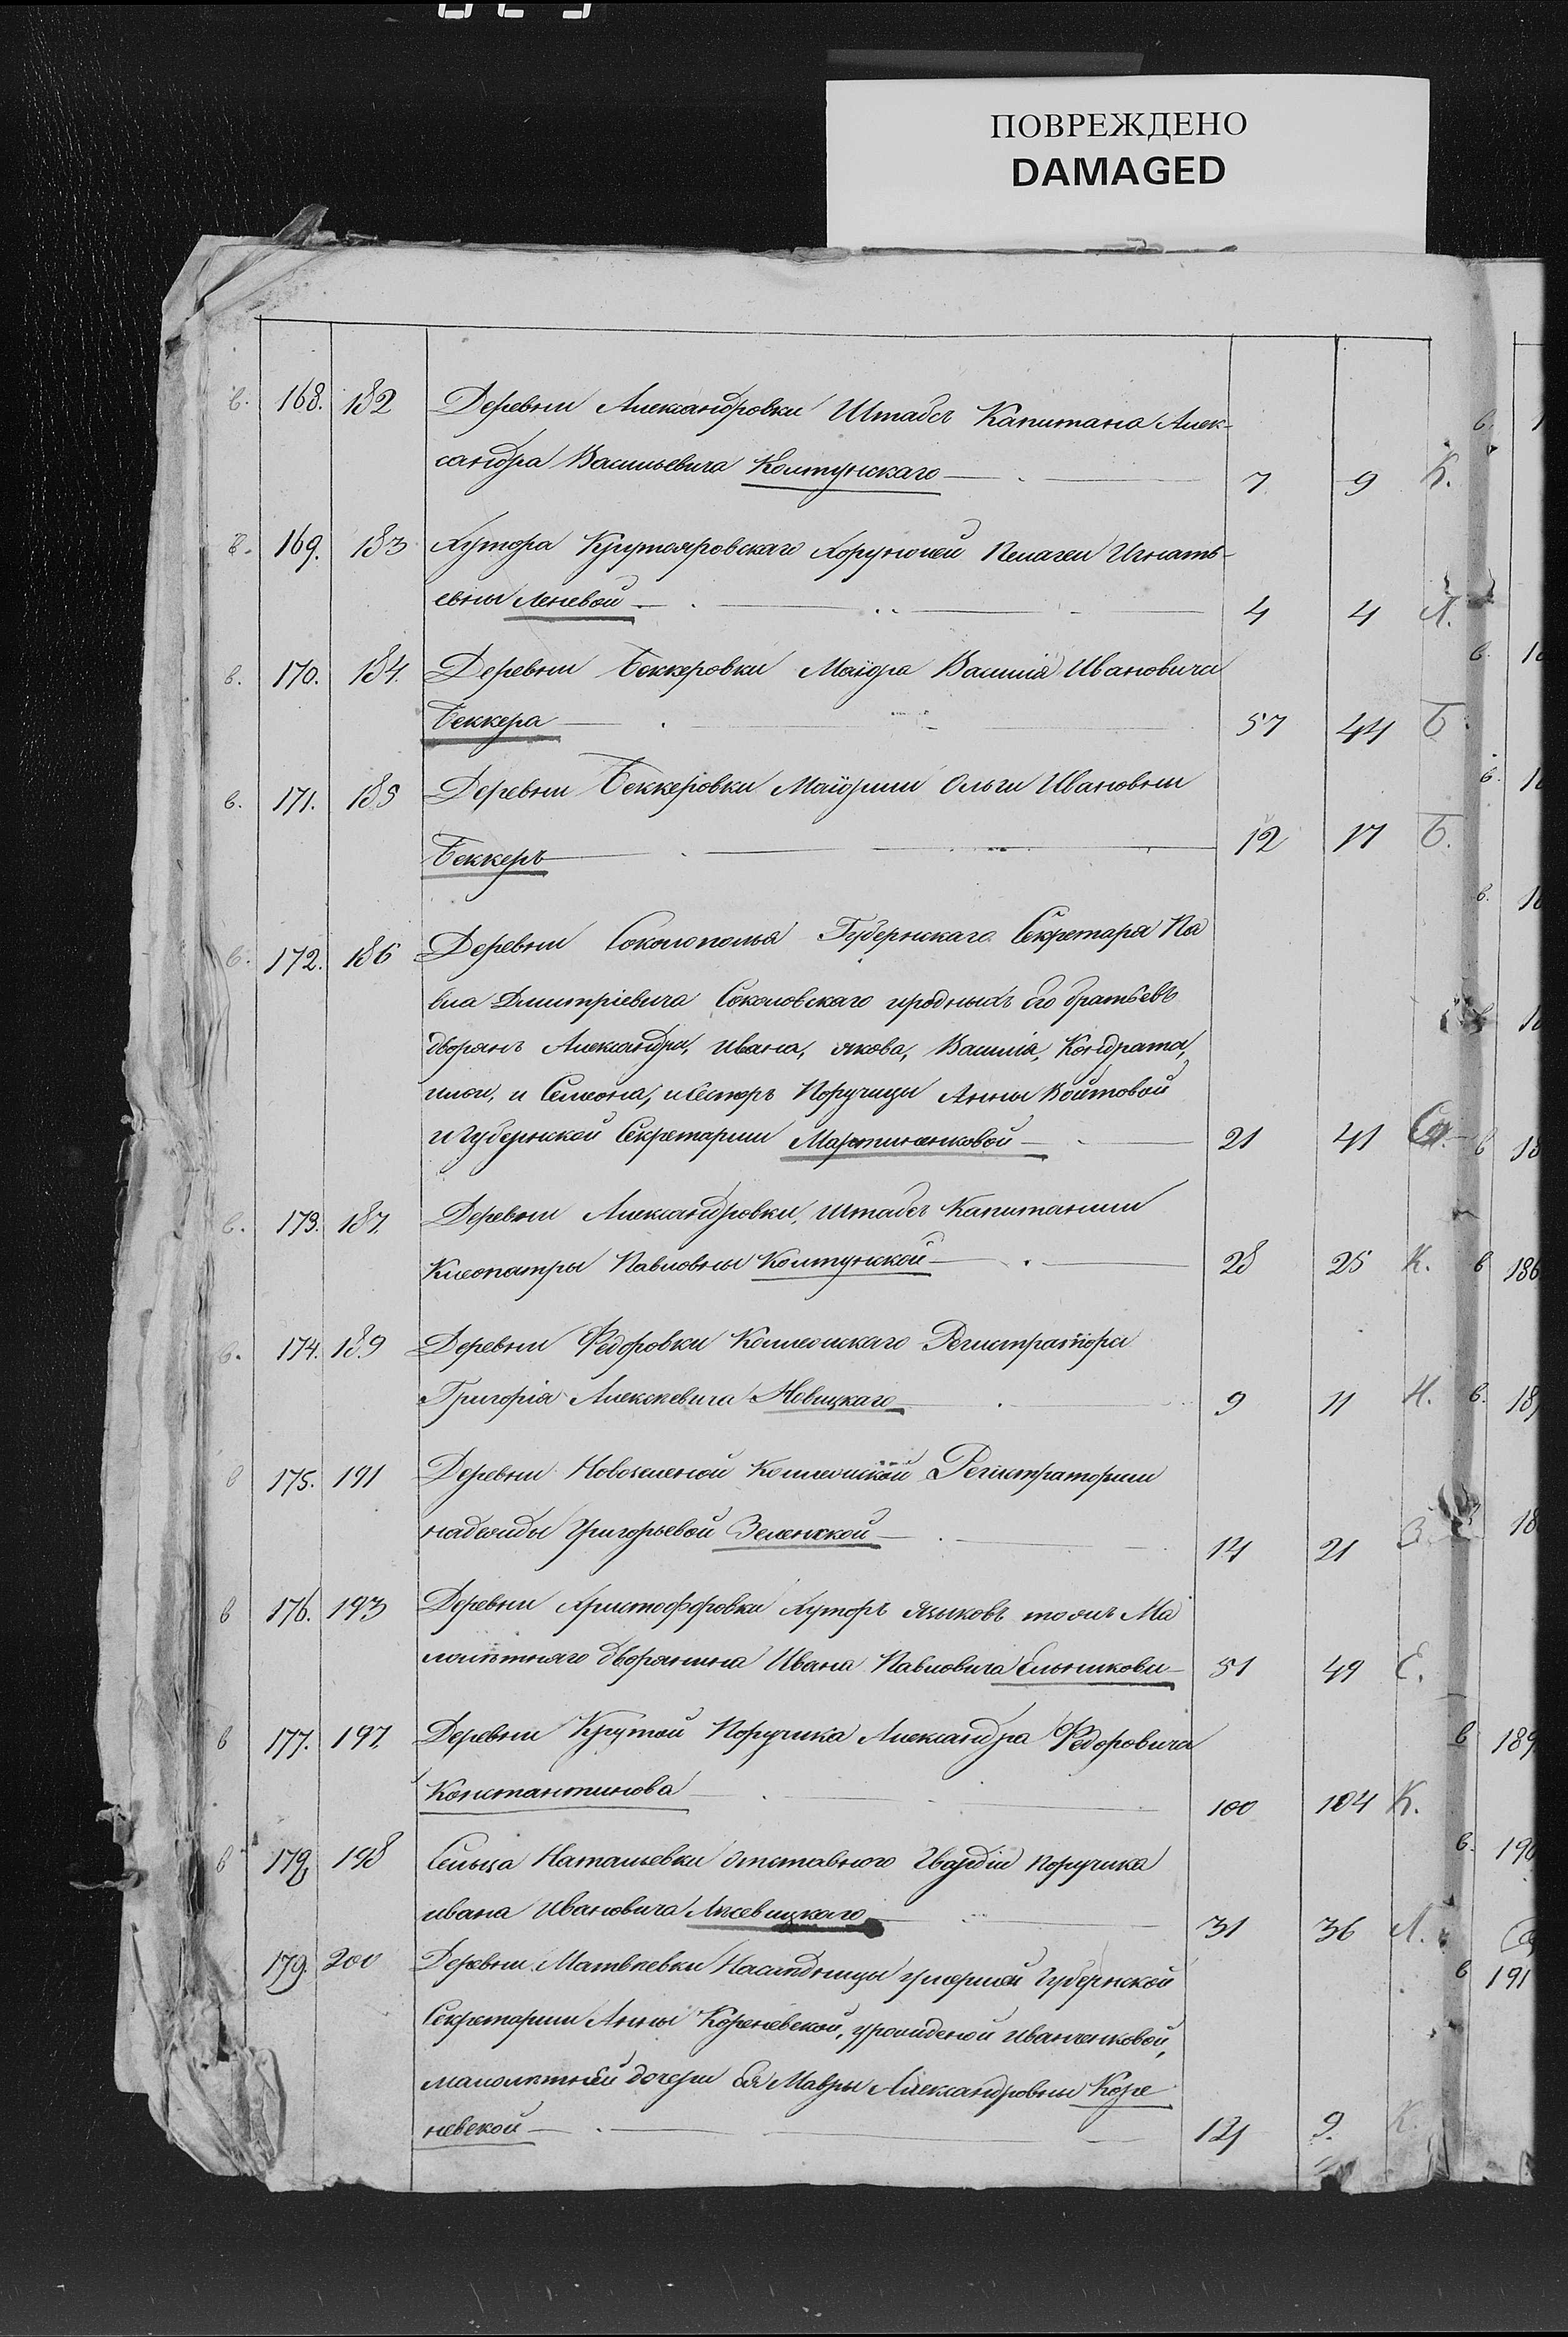 ПОВРЕЖДЕНО
DAMAGED
в. 168. 182 Деревни Александровки Штабсъ Капитана Алек-
сандра Васильевича Колтунскаго 7 9 К.
в. 169. 183 Хутора Крутояровскаго Хорунжей Пелагеи Игнать-
евны Леневой 4 4 Л.
в. 170. 184. Деревни Беккеровки Маіора Василія Ивановича
Беккера 57 44 Б.
в. 171. 185 Деревни Беккеровки Маіорши Ольги Ивановны
Беккеръ 12 17 Б.
в. 172. 186 Деревни Соколополья Губернскаго Секретаря Па
вла Дмитріевича Соколовскаго иродныхъ его братьевъ
дворянъ Александра, Ивана, Якова, Василія, Кондрата,
Ильи, и Семена, и Сестеръ Поручицы Анны Войтовой
и Губернской Секретарши Мартиненковой 21 41
в. 173. 187. Деревни Александровки, Штабсъ Капитанши
Клеопатры Павловны Колтунской 28 25 К.
в. 174. 189 Деревни Федоровки Коллежскаго Регистратора
Григорія Алексѣевича Новицкаго 9 11 Н.
в 175. 191 Деревни Новозеленой Коллежской Регистраторши
Надежды Григорьевой Зеленской 14 21 З.
в 176. 193 Деревни Христофоровки Хуторъ Языковъ тожъ Ма
лолѣтняго дворянина Ивана Павловича Ельчикови 51 49 Е.
в 177. 197. Деревни Крутой Поручика Александра Федоровича
Константинова 100 104 К.
в 178 198 Сельца Наташевки отставного Гвардіи Поручика
Ивана Ивановича Лисевицкаго 31 36 Л.
179. 200 Деревни Матвѣевки Наслѣдницы умершей Губернской
Секретарши Анны Кореневской, урожденой Иванченковой,
малолѣтней дочери Ея Мавры Александровны Коре
невской 12 9. К.